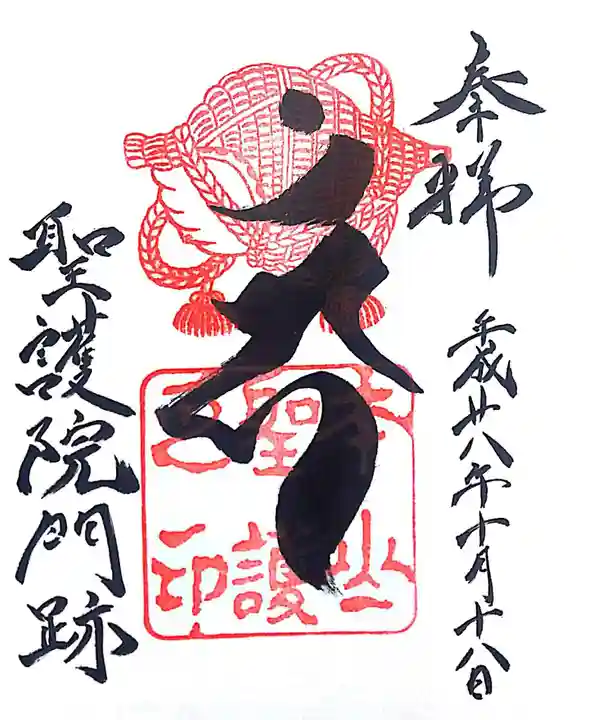 奉拜
平成廿八年十月十八日
本山
聖護
之印
聖護院門跡